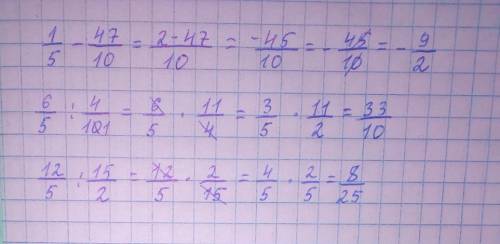 1/5 - 47/10 = 2-47/10 = -45/10 = - 45/10 = - 9/2
6/5 : 4/11 = 6/5 · 11/4 = 3/5 · 11/2 = 33/10
12/5 : 15/2 = 12/5 · 2/15 = 4/5 · 2/5 = 8/25